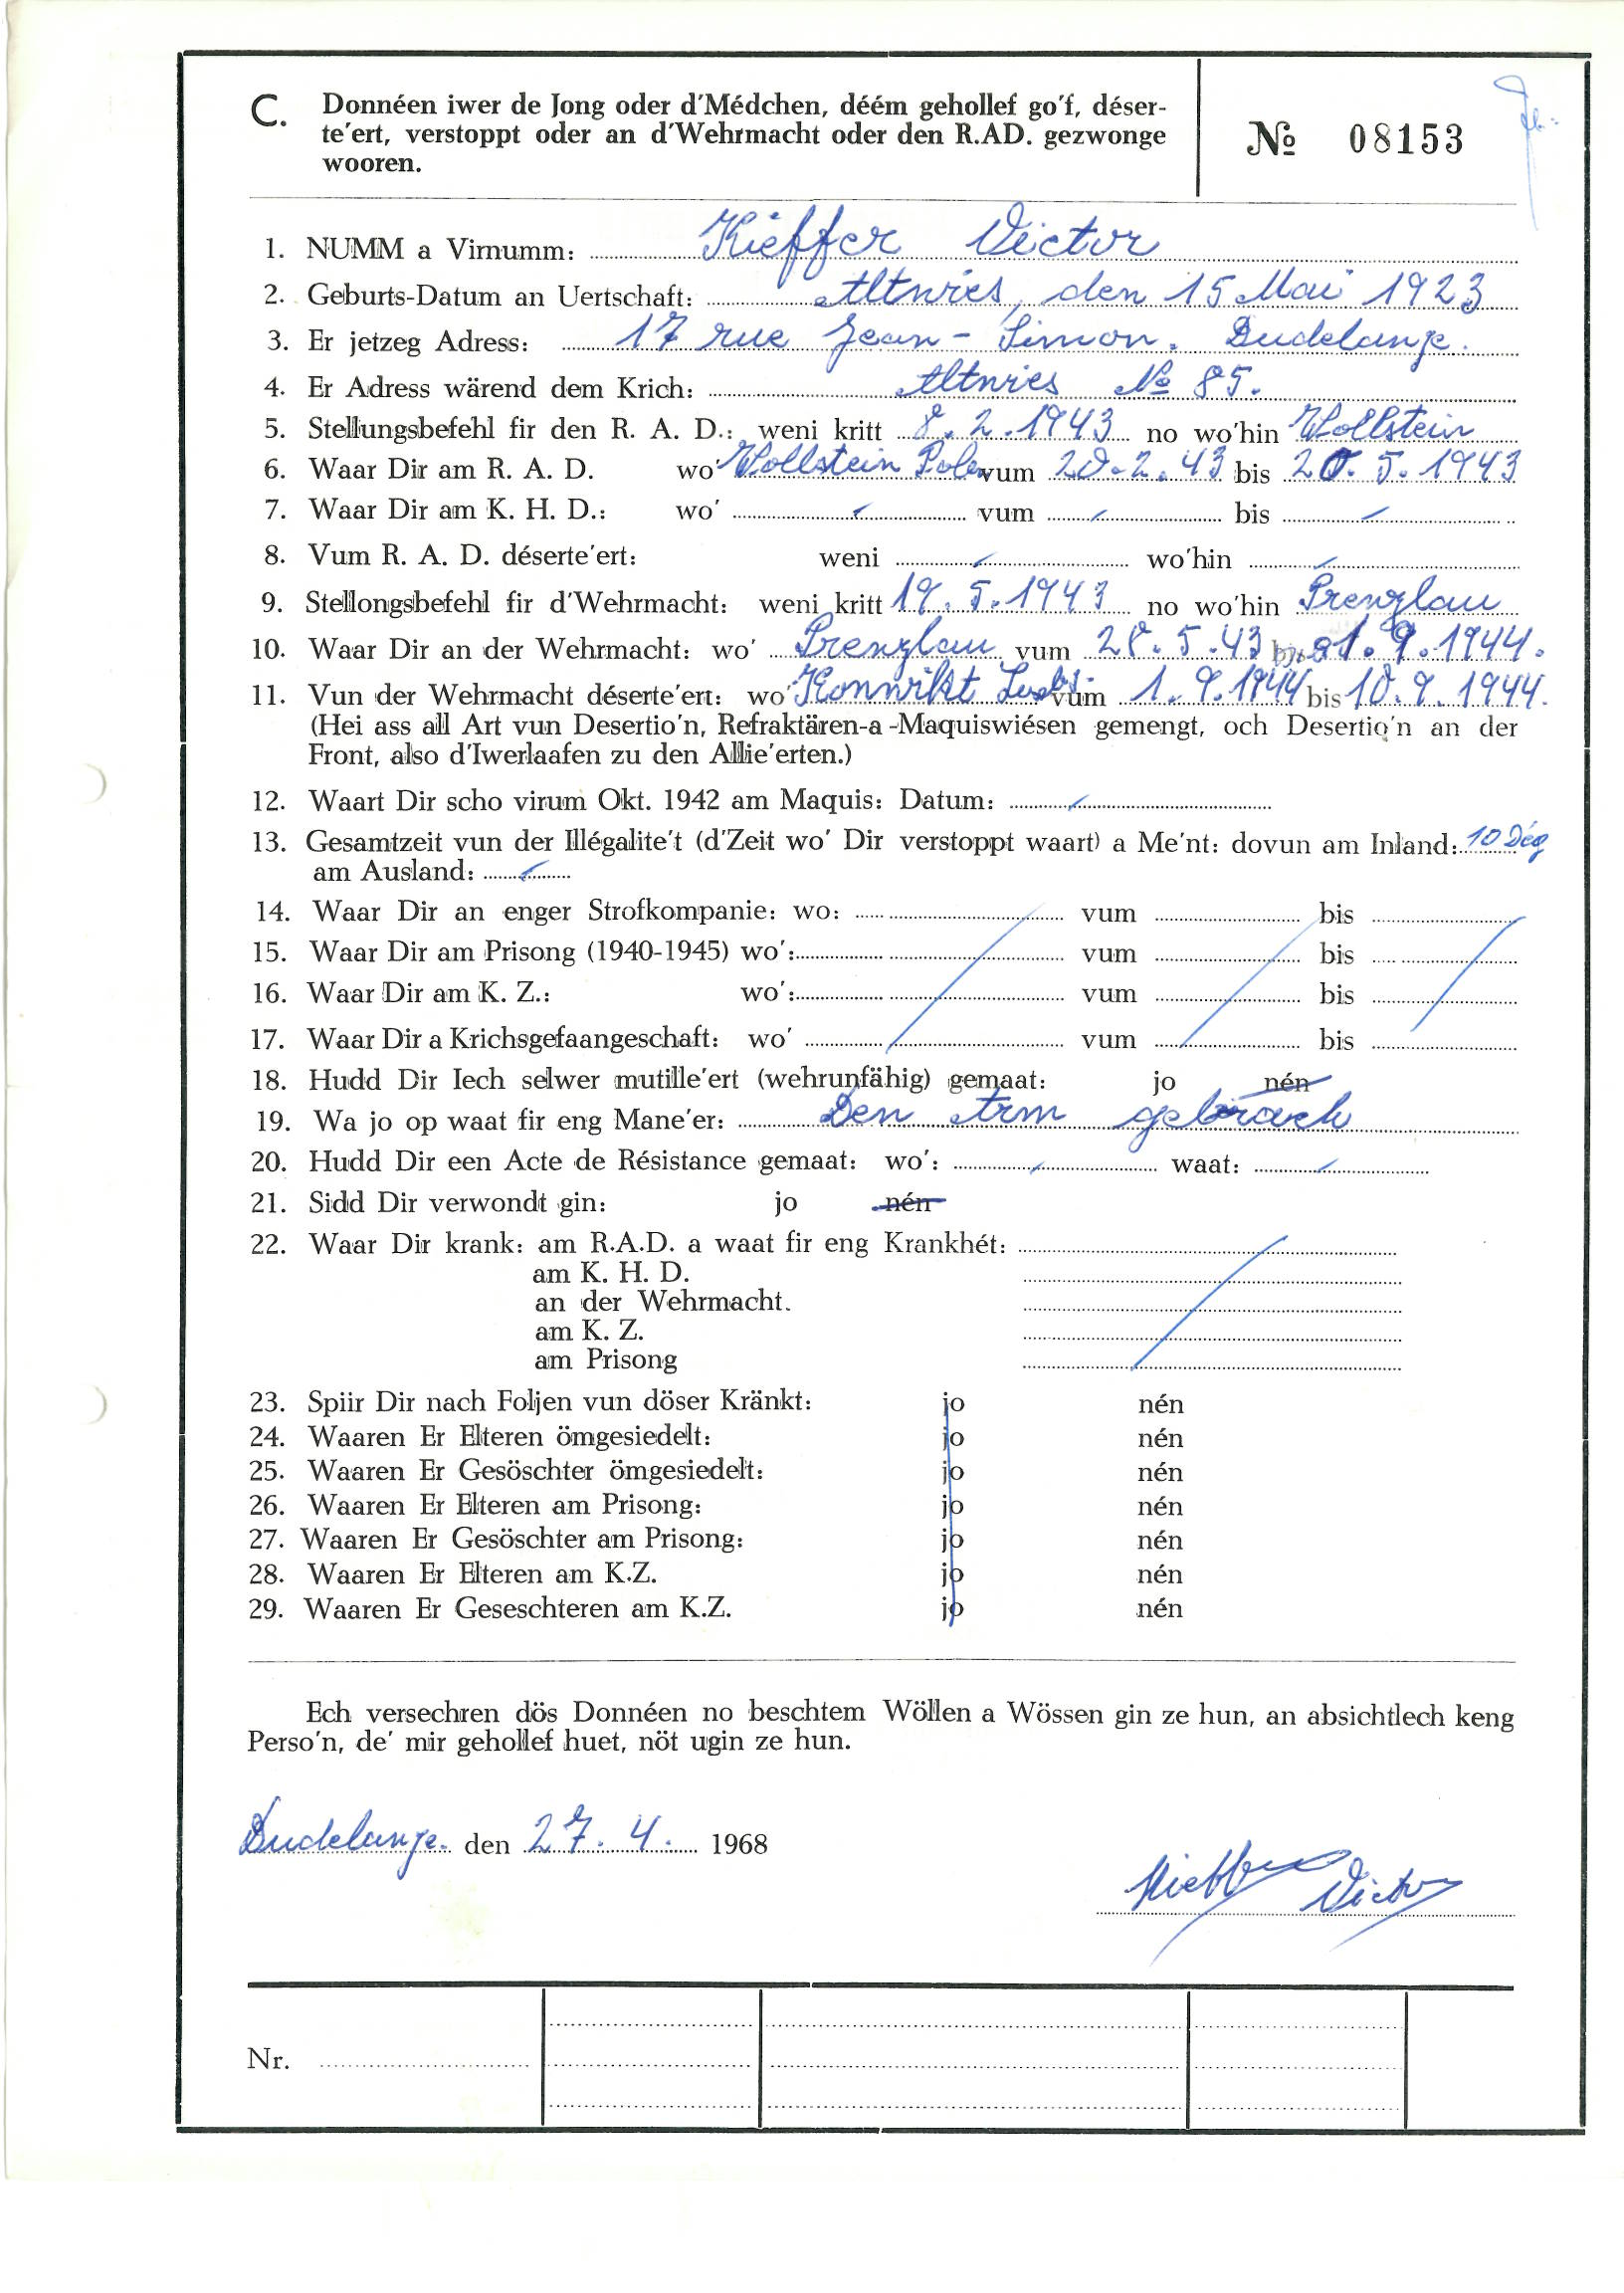 C. Donnéen iwer de Jong oder d'Médchen, déém gehollef go'f, déser-
te'ert, verstoppt oder an d'Wehrmacht oder den R.AD. gezwonge
wooren.
№ 08153
1. NUMM a Virnumm: Kieffer Victor
2. Geburts-Datum an Uertschaft: Altwies, den 15 Mai 1923
3. Er jetzeg Adress: 17 rue Jean-Simon. Dudelange.
4. Er Adress wärend dem Krich: Altwies № 85.
5. Stellungsbefehl fir den R. A. D.: weni kritt 8.2.1943 no wo'hin Wollstein
6. Waar Dir am R. A. D. wo' Wollstein Polen vum 20.2.43 bis 20.5.1943
7. Waar Dir am K. H. D.: wo' vum bis
8. Vum R. A. D. déserte'ert: weni wo'hin
9. Stellongsbefehl fir d'Wehrmacht: weni kritt 19.5.1943 no wo'hin Prenzlau
10. Waar Dir an der Wehrmacht: wo' Prenzlau vum 28.5.43 bis 1.9.1944.
11. Vun der Wehrmacht déserte'ert: wo' Konvikt vum 1.9.1944 bis 10.9.1944.
(Hei ass all Art vun Desertio'n, Refraktären-a -Maquiswiésen gemengt, och Desertio'n an der
Front, also d'Iwerlaafen zu den Allie'erten.)
12. Waart Dir scho virum Okt. 1942 am Maquis: Datum:
13. Gesamtzeit vun der Illégalite't (d'Zeit wo' Dir verstoppt waart) a Me'nt: dovun am Inland: 10 Deg
am Ausland:
14. Waar Dir an enger Strofkompanie: wo: vum bis
15. Waar Dir am Prisong (1940-1945) wo': vum bis
16. Waar Dir am K. Z.: wo': vum bis
17. Waar Dir a Krichsgefaangeschaft: wo' vum bis
18. Hudd Dir Iech selwer mutille'ert (wehrunfähig) gemaat: jo nén
19. Wa jo op waat fir eng Mane'er: Den Arm gebrach
20. Hudd Dir een Acte de Résistance gemaat: wo': waat:
21. Sidd Dir verwondt gin: jo nén
22. Waar Dir krank: am R.A.D. a waat fir eng Krankhét:
am K. H. D.
an der Wehrmacht.
am K. Z.
am Prisong
23. Spiir Dir nach Foljen vun döser Kränkt: jo nén
24. Waaren Er Elteren ömgesiedelt: jo nén
25. Waaren Er Gesöschter ömgesiedelt: jo nén
26. Waaren Er Elteren am Prisong: jo nén
27. Waaren Er Gesöschter am Prisong: jo nén
28. Waaren Er Elteren am K.Z. jo nén
29. Waaren Er Geseschteren am K.Z. jo nén
Ech versechren dös Donnéen no beschtem Wöllen a Wössen gin ze hun, an absichtlech keng
Perso'n, de' mir gehollef huet, nöt ugin ze hun.
Dudelange. den 27. 4. 1968
Kieffer Victor
Nr.